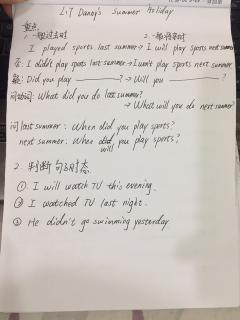 L17 Danny's Summer Holiday
重点
1. 一般过去时 2. 一般将来时
I played sports last summer → I will play sports next summer
否: I didn't play spots last summer → I won't play sports next summer
疑: Did you play ? → Will you ?
问动词: What did you do last summer?
→ What will you do next summer?
问 last summer: When did you play sports?
next summer: When will you play sports?
2. 判断句子时态
① I will watch TV this evening.
② I watched TV last night.
③ He didn't go swimming yesterday